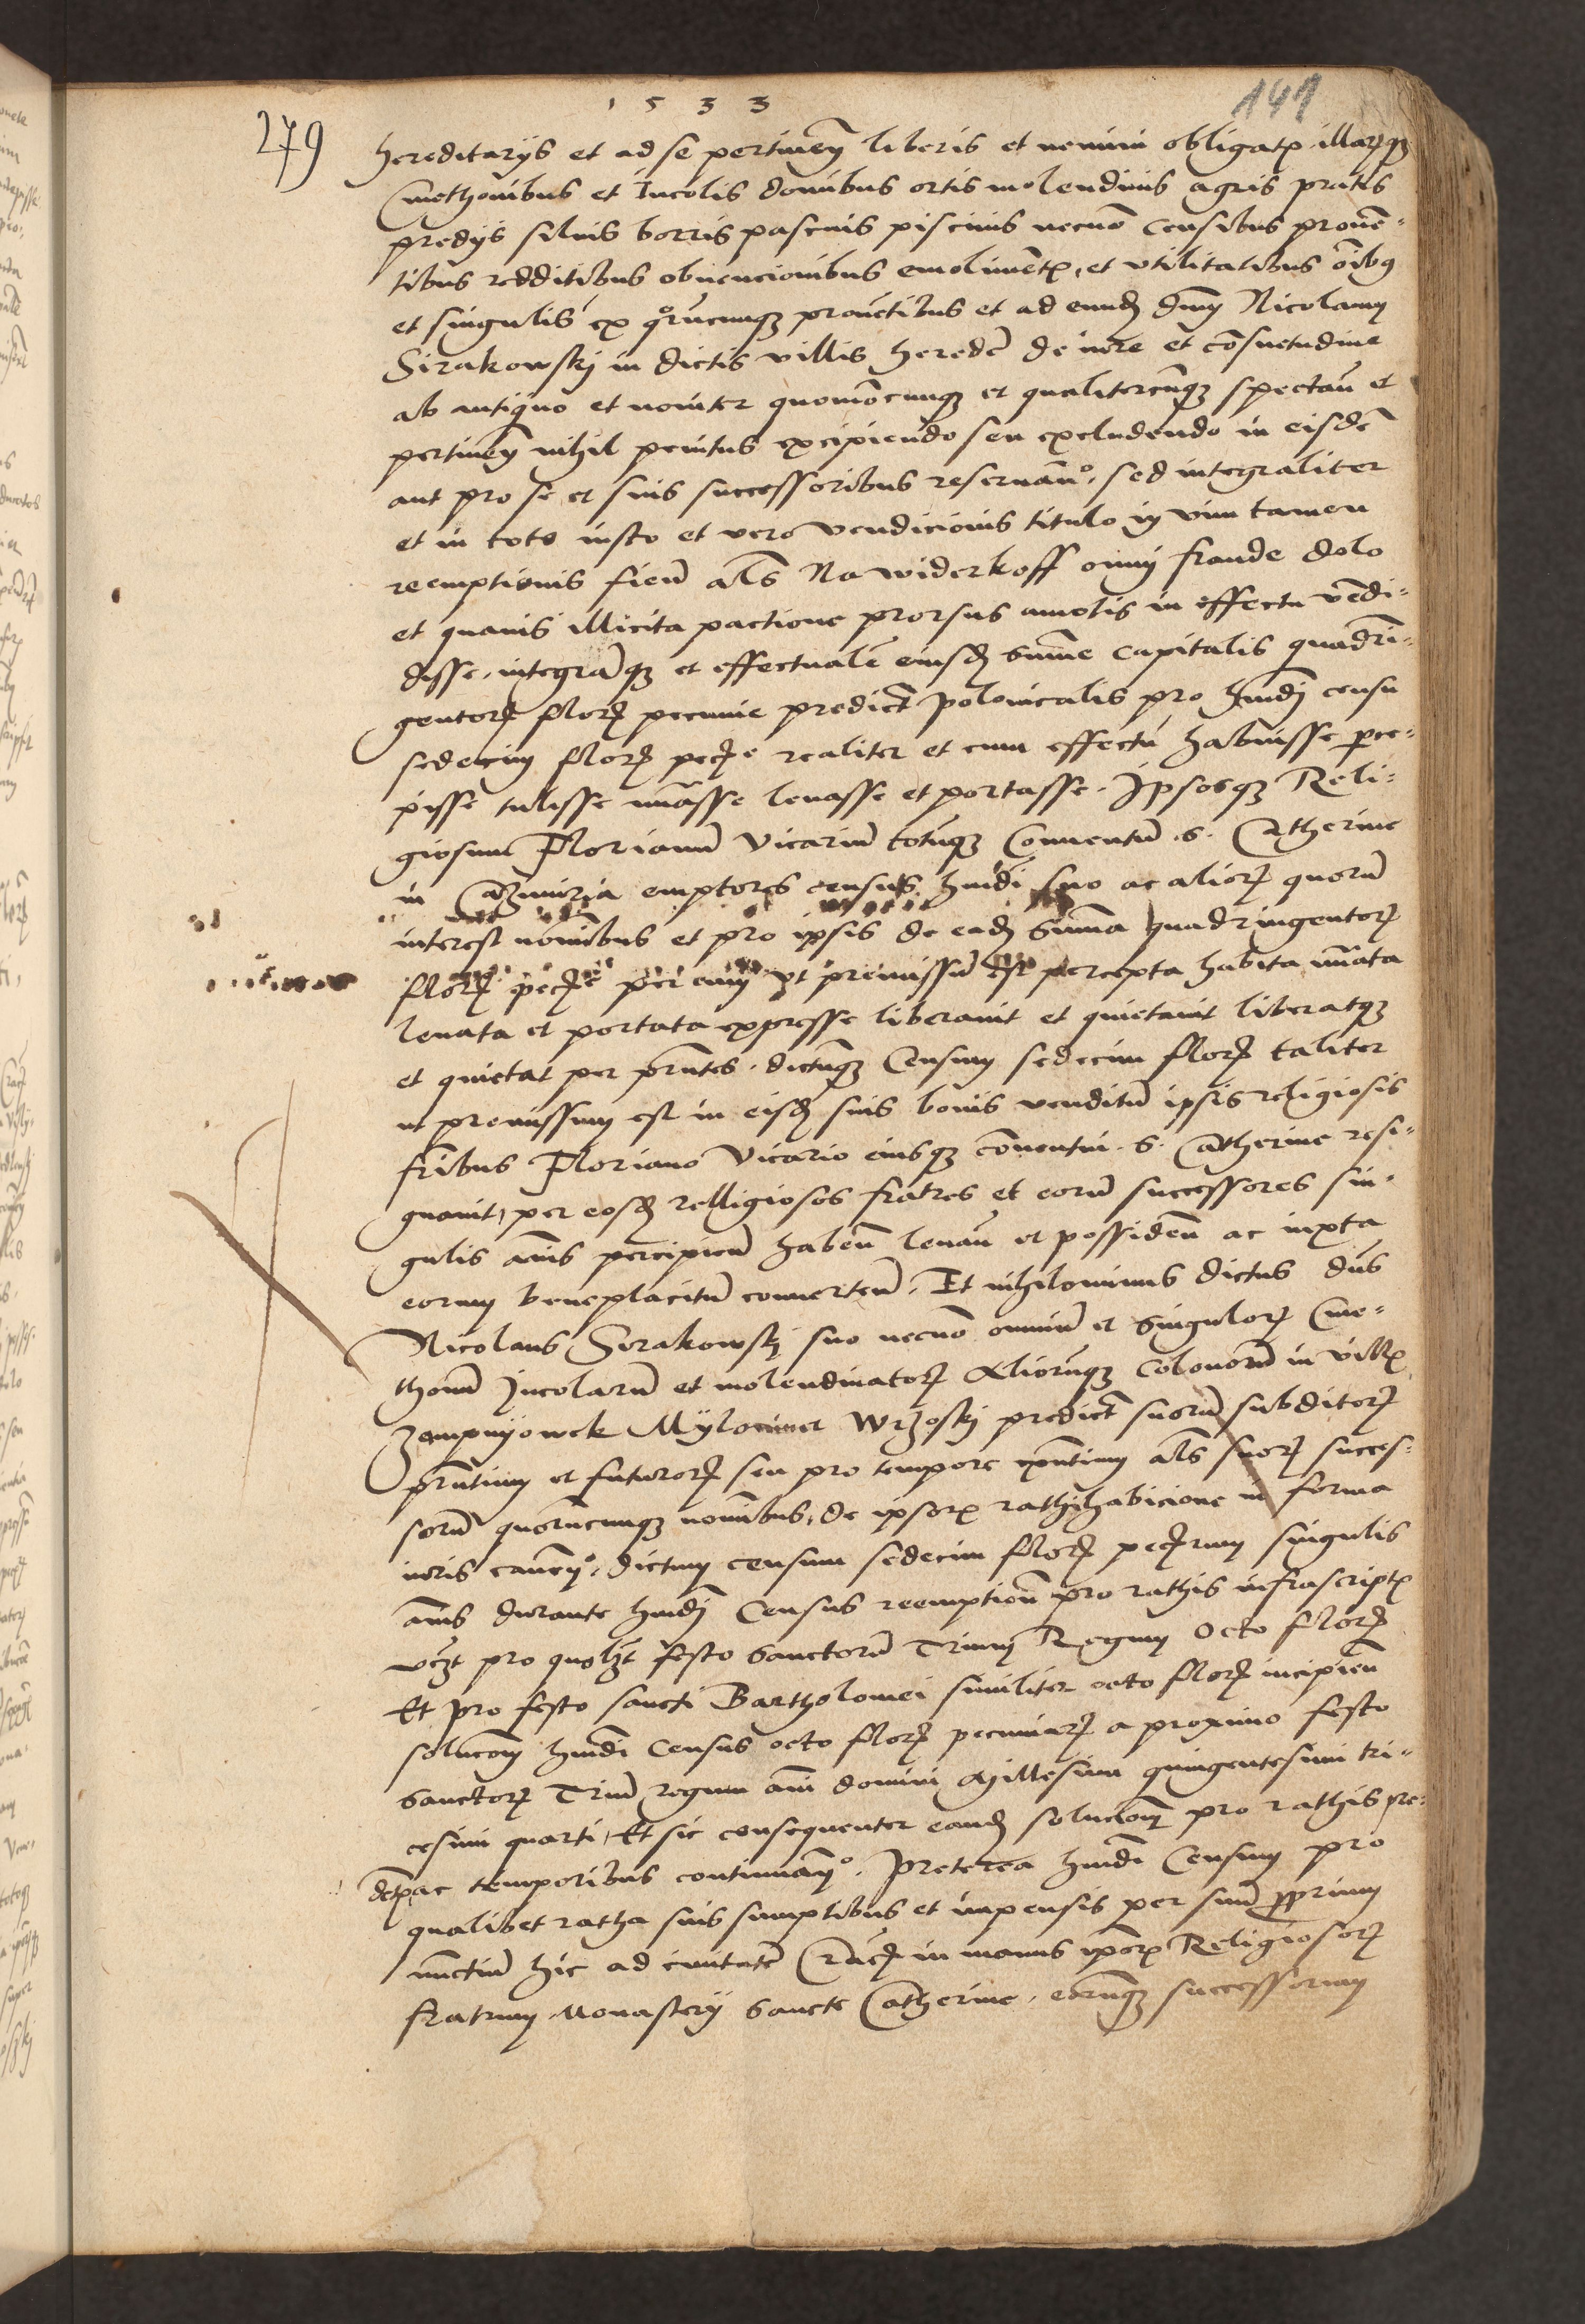 1533
141
279
hereditarys et ad se pertineñ liberis et nemini obligatis illarumque
Cmethonibus et Incolis domibus ortis molendinis agris pratis
predys siluis borris pascuis piscinis necnõ Censibus prouẽ-
tibus redditibus obuencionibus emolimẽtis, et vtilitatibus oĩbus
et singulis ex quorũcunque prouẽtibus et ad eundẽ dñm Nicolaum
Sirakowskj in dictis villis heredẽ de iure et cõsuetudine
ab antiquo et nouiter quomõcunque et qualitercũque spectañ et
pertineñ nihil penitus excipiendo seu excludendo in eisdẽ
aut pro se et suis successoribus reseruañ. sed integraliter
et in toto iusto et vero vendicionis titulo in vim tamen
reemptionis fieñ als Na widerkoff omni fraude dolo
et quauis illicita pactione prorsus amotis in effectu vẽdi-
disse, integrãque et effectualẽ eiusdẽ sũme capitalis quadrĩ-
gentorũ florũ pecunie predict polonicalis pro hmõi censu
sedecim florũ pecũe realiter et cum effectu habuisse perce-
pisse tulisse nũasse leuasse et portasse. Ipsosque Reli-
giosum Florianũ Vicariũ totũque Conuentũ S. Catherine
in Cazimiria emptores census hmõi suo ac aliorũ quorũ
interest nõibus et pro ipsis de eadẽ sũma quadringentorũ
florũ pecũe per eum vt premissũ est percepta habita nũata
leuata et portata expresse liberauit et quietauit liberatque
et quietat per pñtes. dictũque Censum sedecim florũ taliter
ut premissum est in eisdẽ suis bonis venditũ ipsis religiosis
fribus Floriano Vicario eiusque conuentui S. Catherine resi-
gnauit, per eosdẽ relligiosos fratres et eorũ successores sin-
gulis annis percipieñ habeñ leuañ et possideñ ac iuxta
eorum beneplacitũ conuerteñ. Et nihilominus dictus dñs
Nicolaus Sirakowskj suo necnõ omniũ et singulorũ Cme-
thonũ Incolarũ et molendinatorũ Aliorũque Colonorũ in villis
Zempnyowek Mylonice Wrzoskj predict suorũ subditorũ
pñtium et futurorũ seu pro tempore exñtium als suorũ succes-
sorũ quorũcunque nomĩbus, de ipsorũ rathihabicione in forma
iuris caueñ. dictum censum sedecim florũ pecũarum singulis
annis durante hmõi Census reemptionẽ pro rathis infrascriptis
vczt pro quolĩt festo Sanctorũ Triũ Regum Octo florũ
Et pro festo sancti Bartholomei similiter octo florũ incipieñ
solucionẽ hmõi Census octo florũ pecuniarũ a proximo festo
Sanctorũ Triũ regum anni domini Millesimi quingentesimi tri-
cesimi quarti, Et sic consequenter eandẽ solucionẽ pro rathis pre-
dctis ac temporibus continuañ. Preterea hmõi Censum pro
qualibet ratha suis sumptibus et impensis per suũ proprium
nũctiũ hic ad ciuitatẽ Cracũ in manus ipsorũ Religiosorũ
fratrum Monastery Sancte Catherine, eorũque successorum